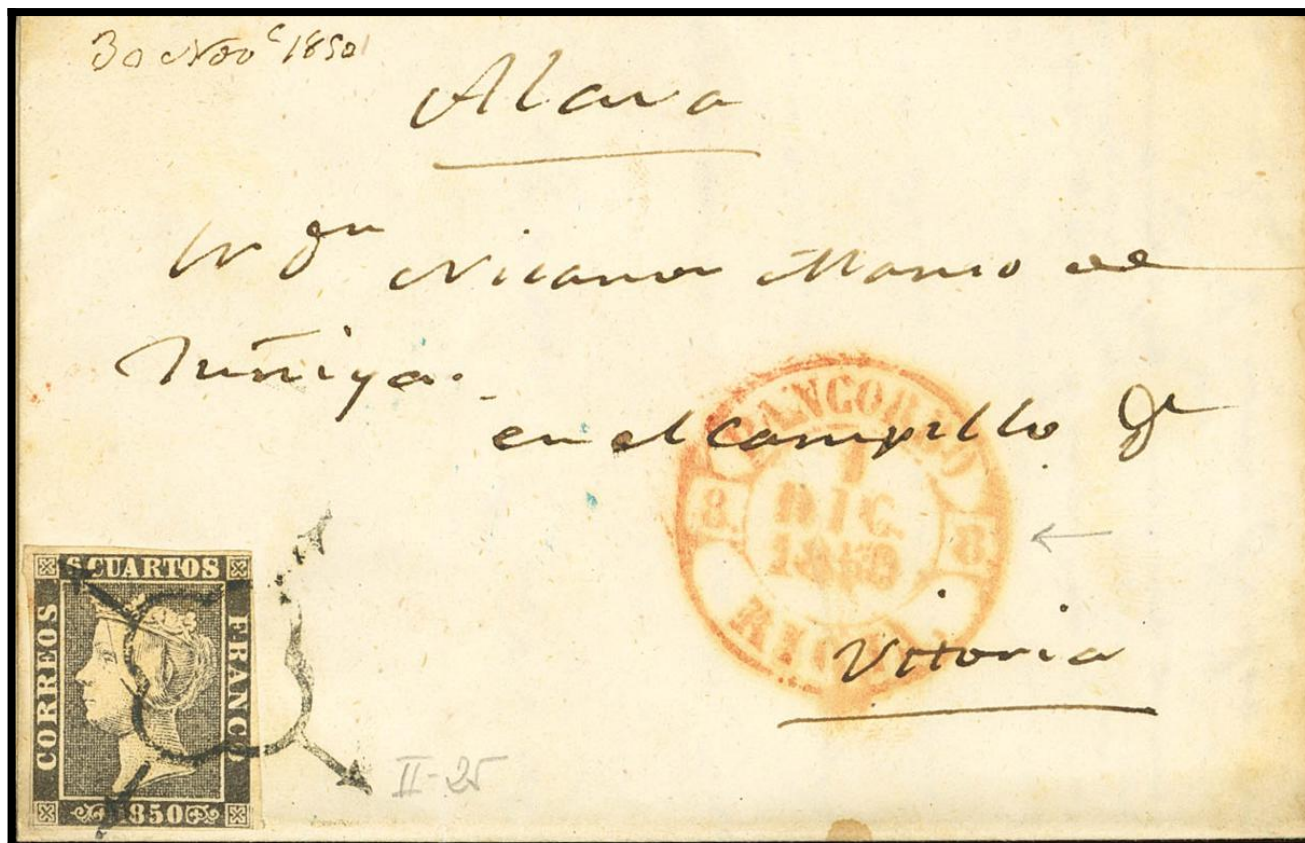 30 Nov.e 1850
Alava
Sr Dn Nicanor Manso de
Zuñiga.
en el campillo Dr
PANCORBO
1
DIC
1850
8.
8.
Vitoria
6 CUARTOS
CORREOS
FRANCO
1850
II-25